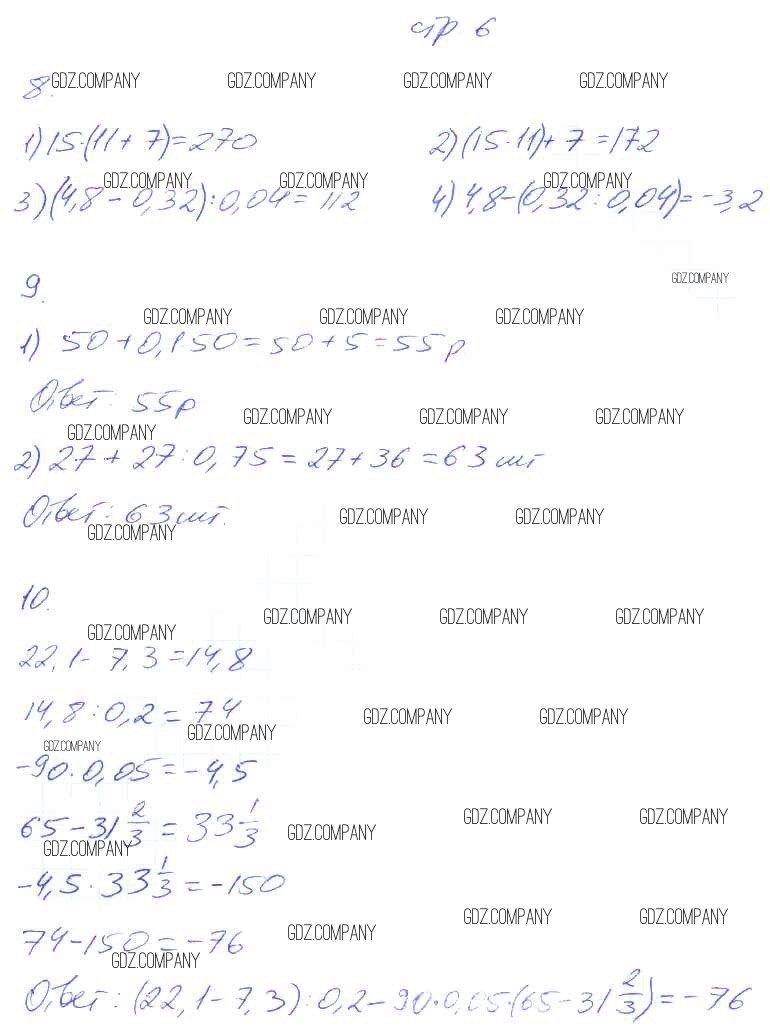 стр 6
8. GDZ.COMPANY GDZ.COMPANY GDZ.COMPANY GDZ.COMPANY
1) 15·(11+7)=270 2) (15·11)+7=172
GDZ.COMPANY GDZ.COMPANY GDZ.COMPANY
3) (4,8-0,32):0,04=112 4) 4,8-(0,32:0,04)=-3,2
9. GDZ.COMPANY
GDZ.COMPANY GDZ.COMPANY GDZ.COMPANY
1) 50+0,1·50=50+5=55р
Ответ: 55р
GDZ.COMPANY GDZ.COMPANY GDZ.COMPANY GDZ.COMPANY
2) 27+27:0,75=27+36=63шт
Ответ: 63шт.
GDZ.COMPANY GDZ.COMPANY GDZ.COMPANY
10.
GDZ.COMPANY GDZ.COMPANY GDZ.COMPANY GDZ.COMPANY
22,1-7,3=14,8
14,8:0,2=74
GDZ.COMPANY GDZ.COMPANY GDZ.COMPANY
GDZ.COMPANY
-90·0,05=-4,5
65-31 2/3=33 1/3
GDZ.COMPANY GDZ.COMPANY GDZ.COMPANY GDZ.COMPANY
-4,5·33 1/3=-150
74-150=-76
GDZ.COMPANY GDZ.COMPANY GDZ.COMPANY GDZ.COMPANY
Ответ: (22,1-7,3):0,2-90·0,05·(65-31 2/3)=-76